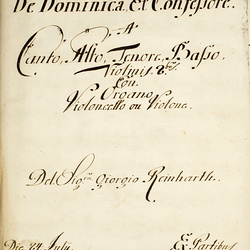 De Dominica, Et Confessore.
A
Canto, Alto, Tenore, Basso.
Violinis 2bus
Con
Organo
Violoncello ou Violone.
Del Sigre Giorgio Reinharth.
Die 24 July.
Ex Partibus